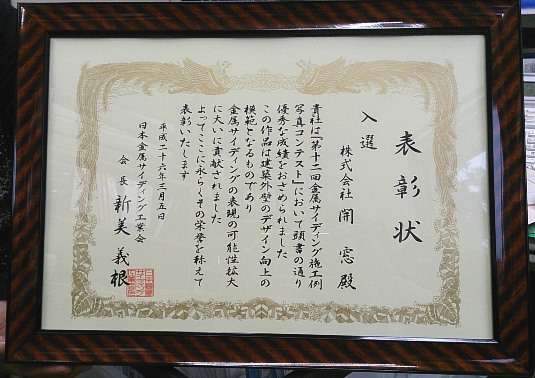 表彰状
入選
株式会社 開窓 殿
貴社は「第十二回金属サイディング施工例
写真コンテスト」において頭書の通り
優秀な成績をおさめられました
この作品は建築外壁のデザイン向上の
模範となるものであり
金属サイディングの表現の可能性拡大
に大いに貢献されました
よってここに永らくその栄誉を称えて
表彰いたします
平成二十六年三月五日
日本金属サイディング工業会
会長 新美義根